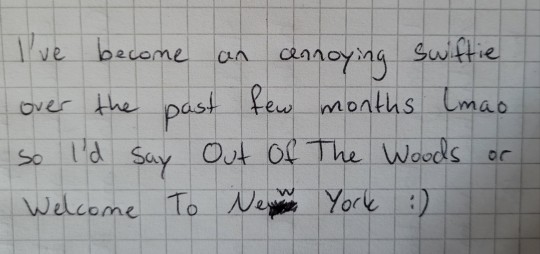 I've become an annoying swiftie
over the past few months lmao
so I'd say Out Of The Woods or
Welcome To New York :)